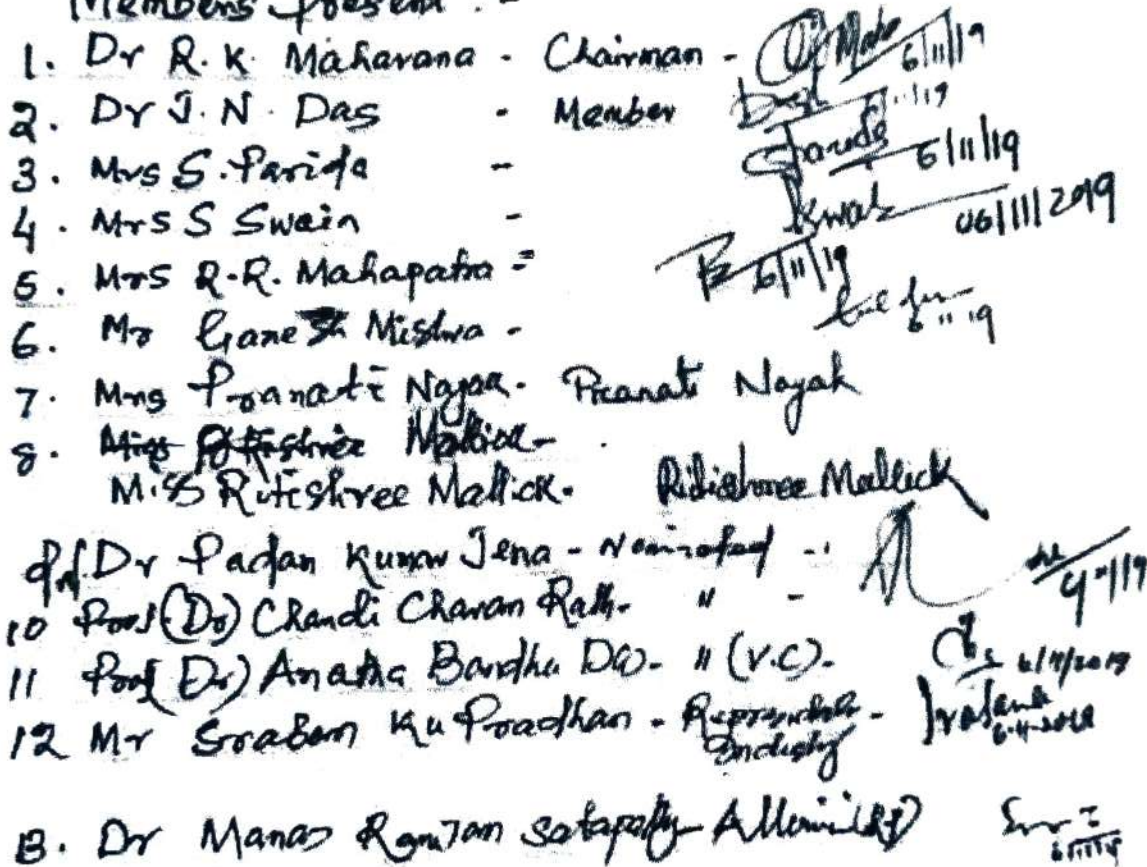 Members Present :-
1. Dr R.K. Maharana - Chairman - 6/11/19
2. Dr J.N. Das - Member
3. Mrs S. Parida - 6/11/19
4. Mrs S Swain - 06/11/2019
5. Mrs R.R. Mahapatra - 6/11/19
6. Mr Ganesh Mishra - 6 11 19
7. Mrs Pranati Nayak - Pranati Nayak
8. Mallick -
Miss Riteshree Mallick. Riteshree Mallick
Dr Padan Kumar Jena - Nominated -
10 Prof (Dr) Chandi Charan Rath - " -
11 Prof (Dr) Anatha Bandhu Das - " (V.C) - 6/11/2019
12 Mr Sraban Ku Pradhan - -
13. Dr Manas Ranjan Satapathy -